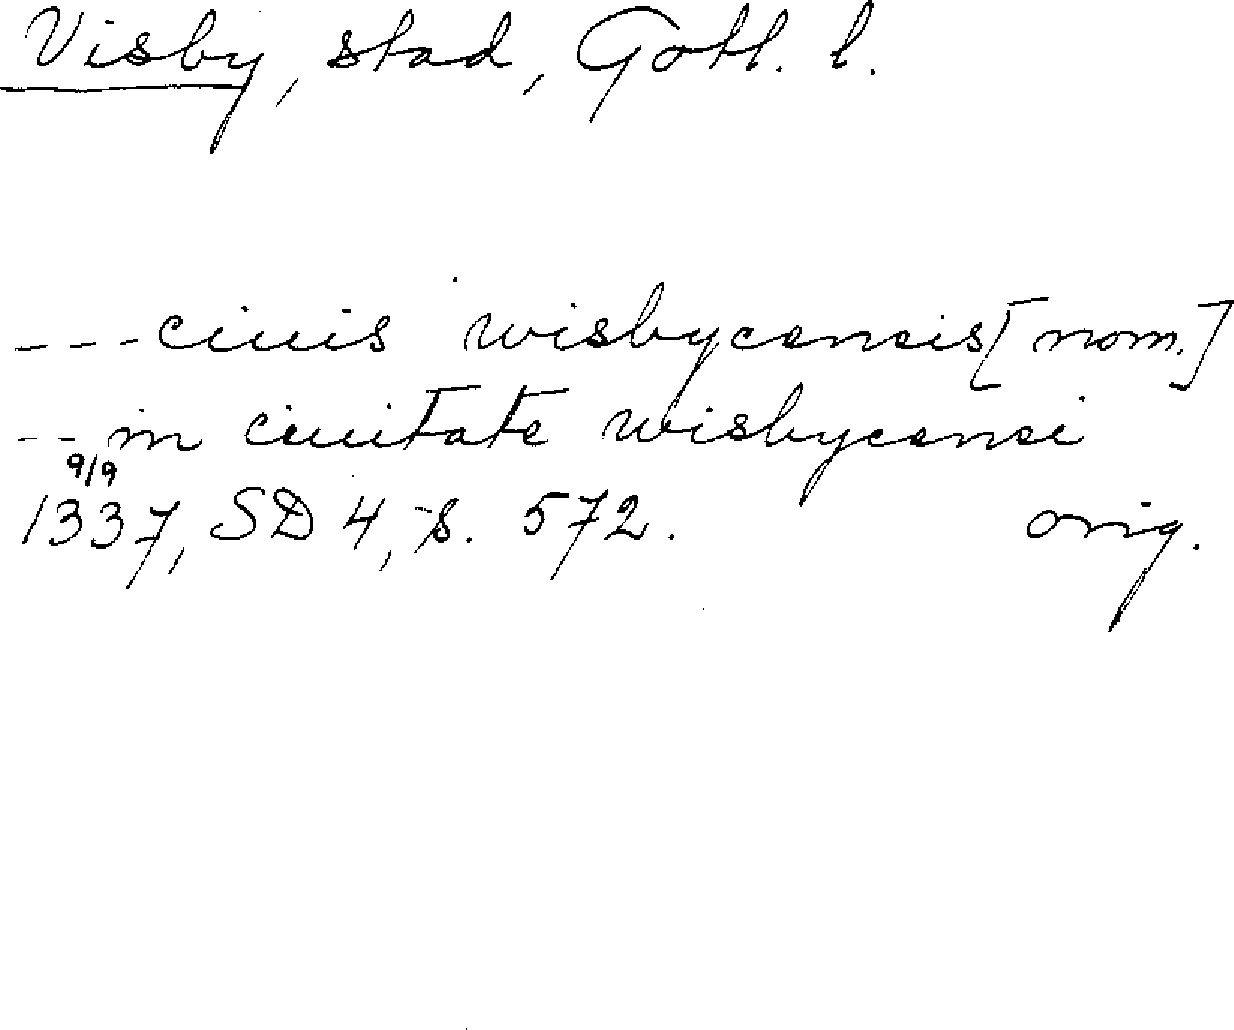 Visby, stad, Gotl. l.
--- ciuis wisbycensis [nom.]
-- in ciuitate wisbycensi
9/9
1337, SD 4, s. 572. orig.